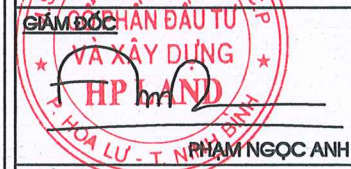 GIÁM ĐỐC
CỔ PHẦN ĐẦU TƯ
VÀ XÂY DỰNG
HP LAND
P. HOA LƯ - T. NINH BÌNH
PHẠM NGỌC ANH